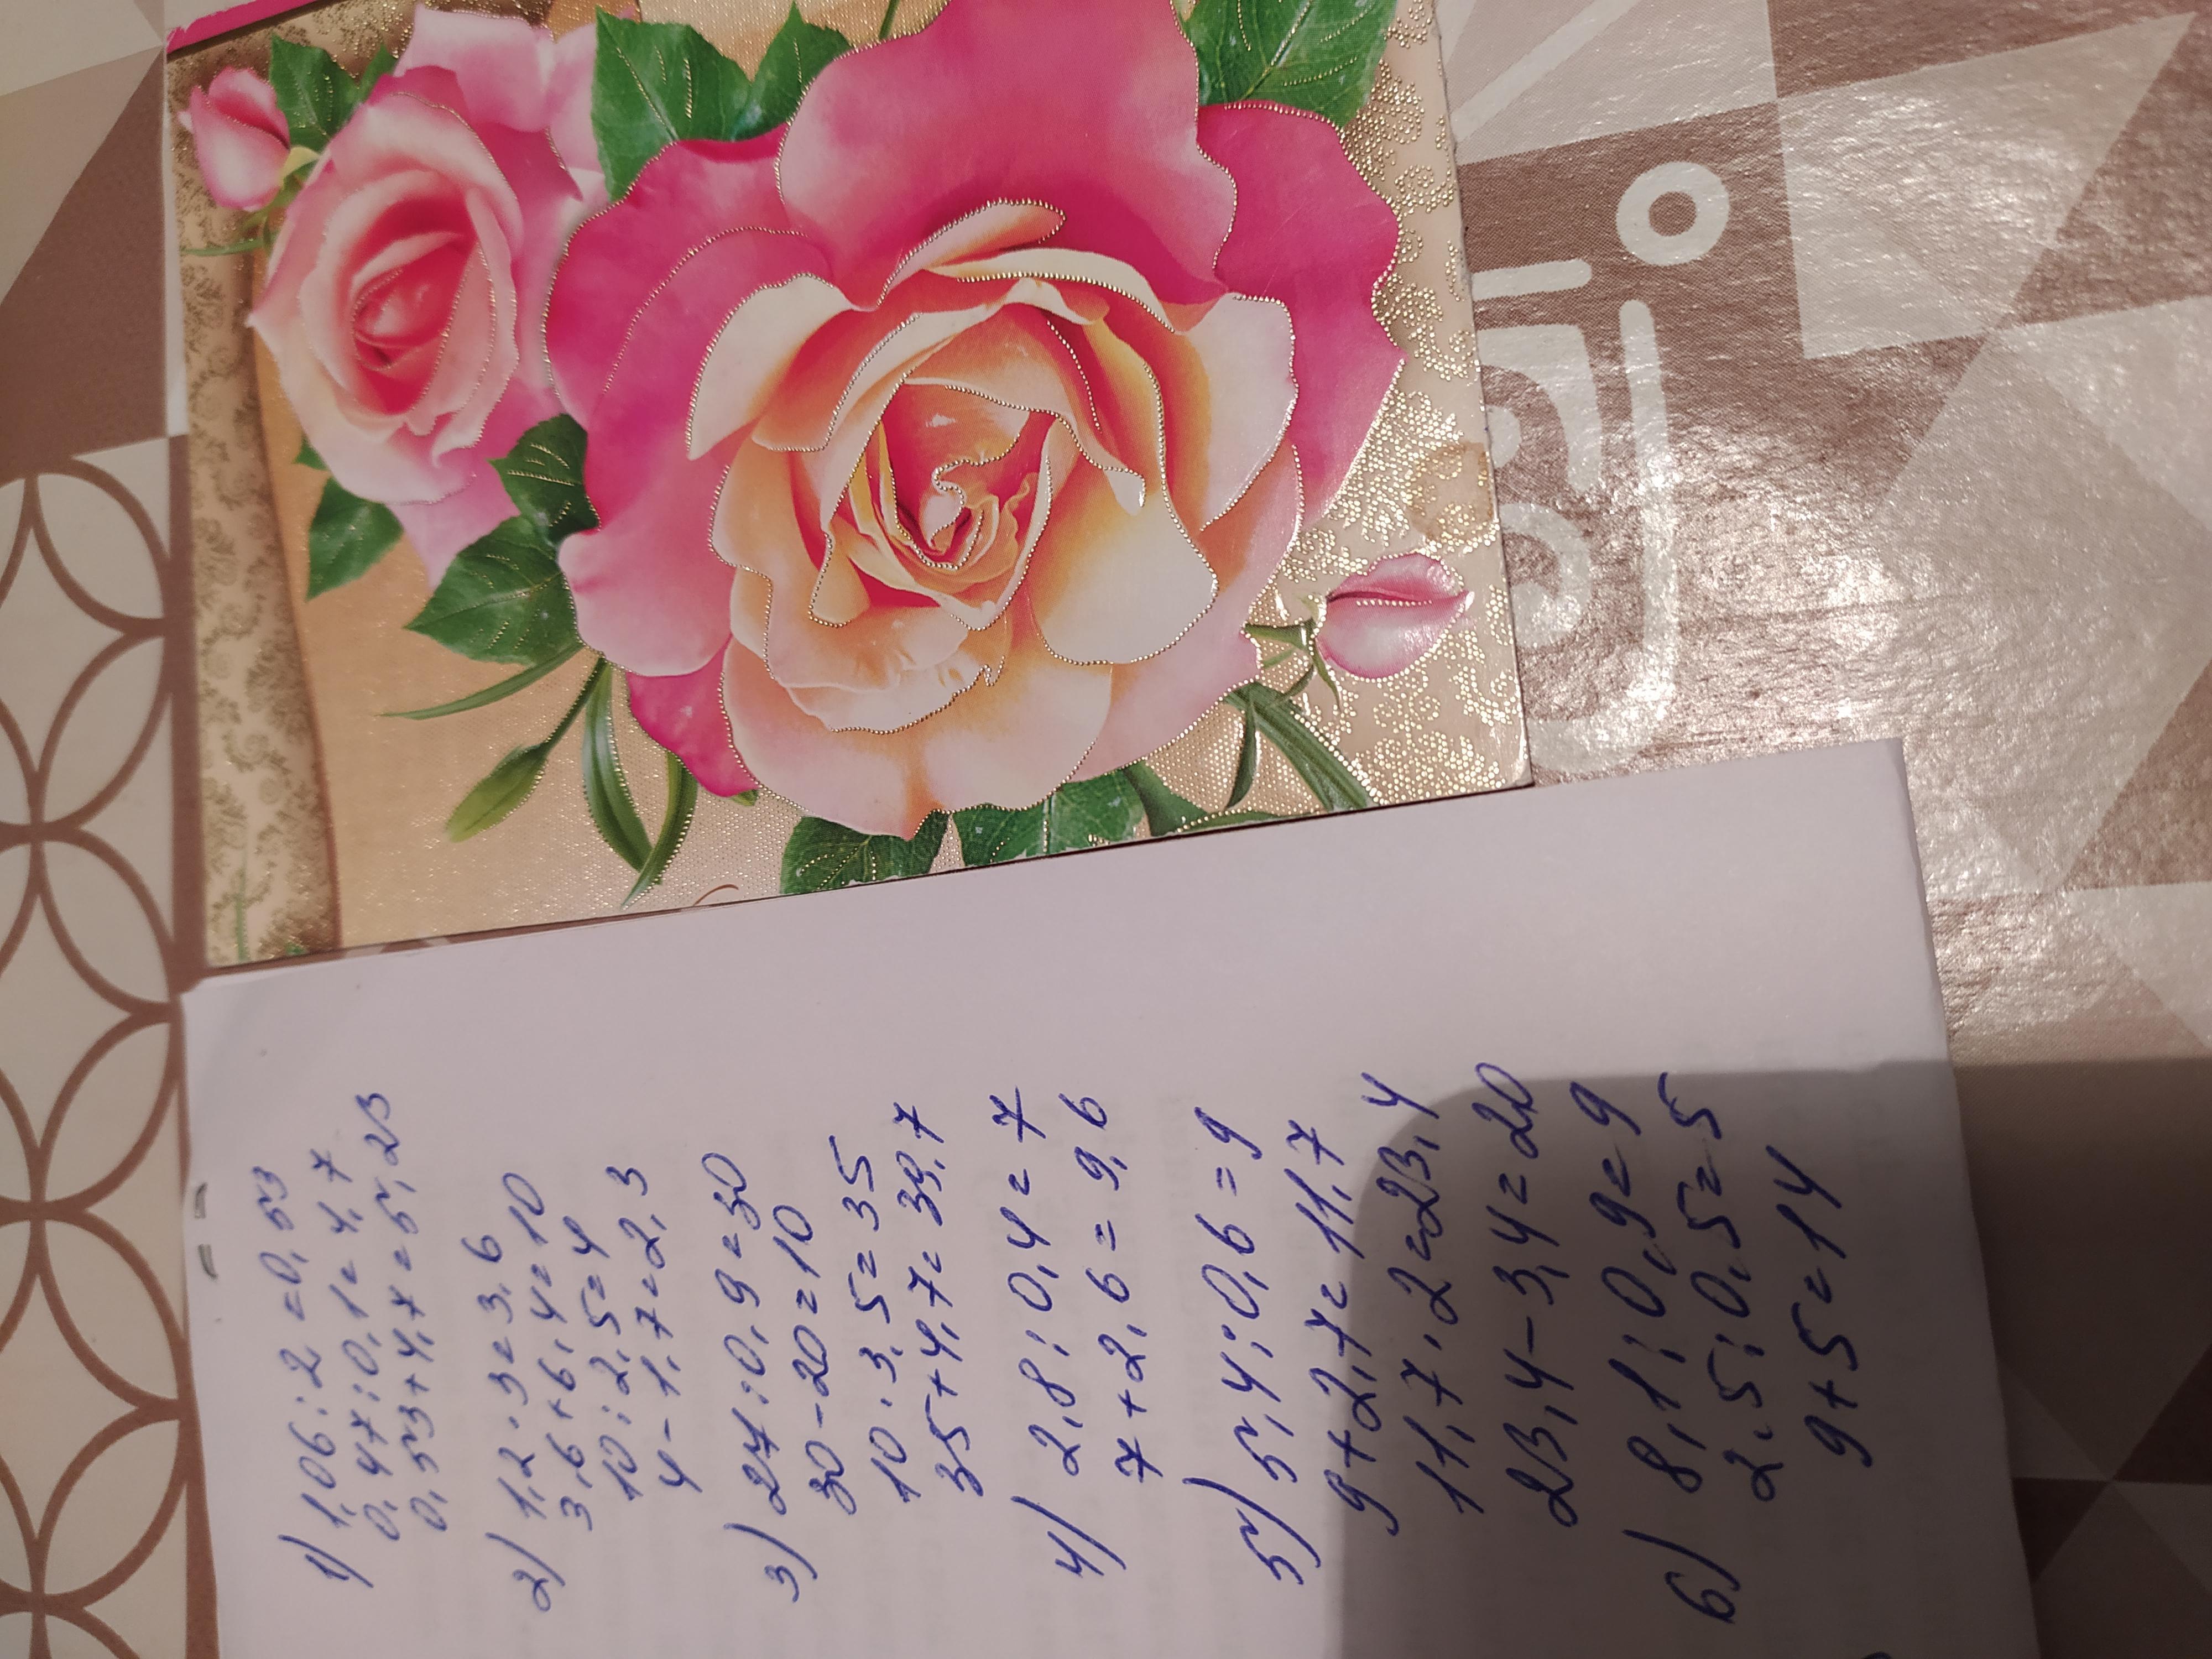 1) 1,06 : 2 = 0,53
0,47 : 0,1 = 4,7
0,53 + 4,7 = 5,23
2) 1,2 · 3 = 3,6
3,6 + 6,4 = 10
10 : 2,5 = 4
4 - 1,7 = 2,3
3) 27 : 0,9 = 30
30 - 20 = 10
10 · 3,5 = 35
35 + 4,7 = 39,7
4) 2,8 : 0,4 = 7
7 + 2,6 = 9,6
5) 5,4 : 0,6 = 9
9 + 2,7 = 11,7
11,7 · 2 = 23,4
23,4 - 3,4 = 20
6) 8,1 : 0,9 = 9
2,5 : 0,5 = 5
9 + 5 = 14